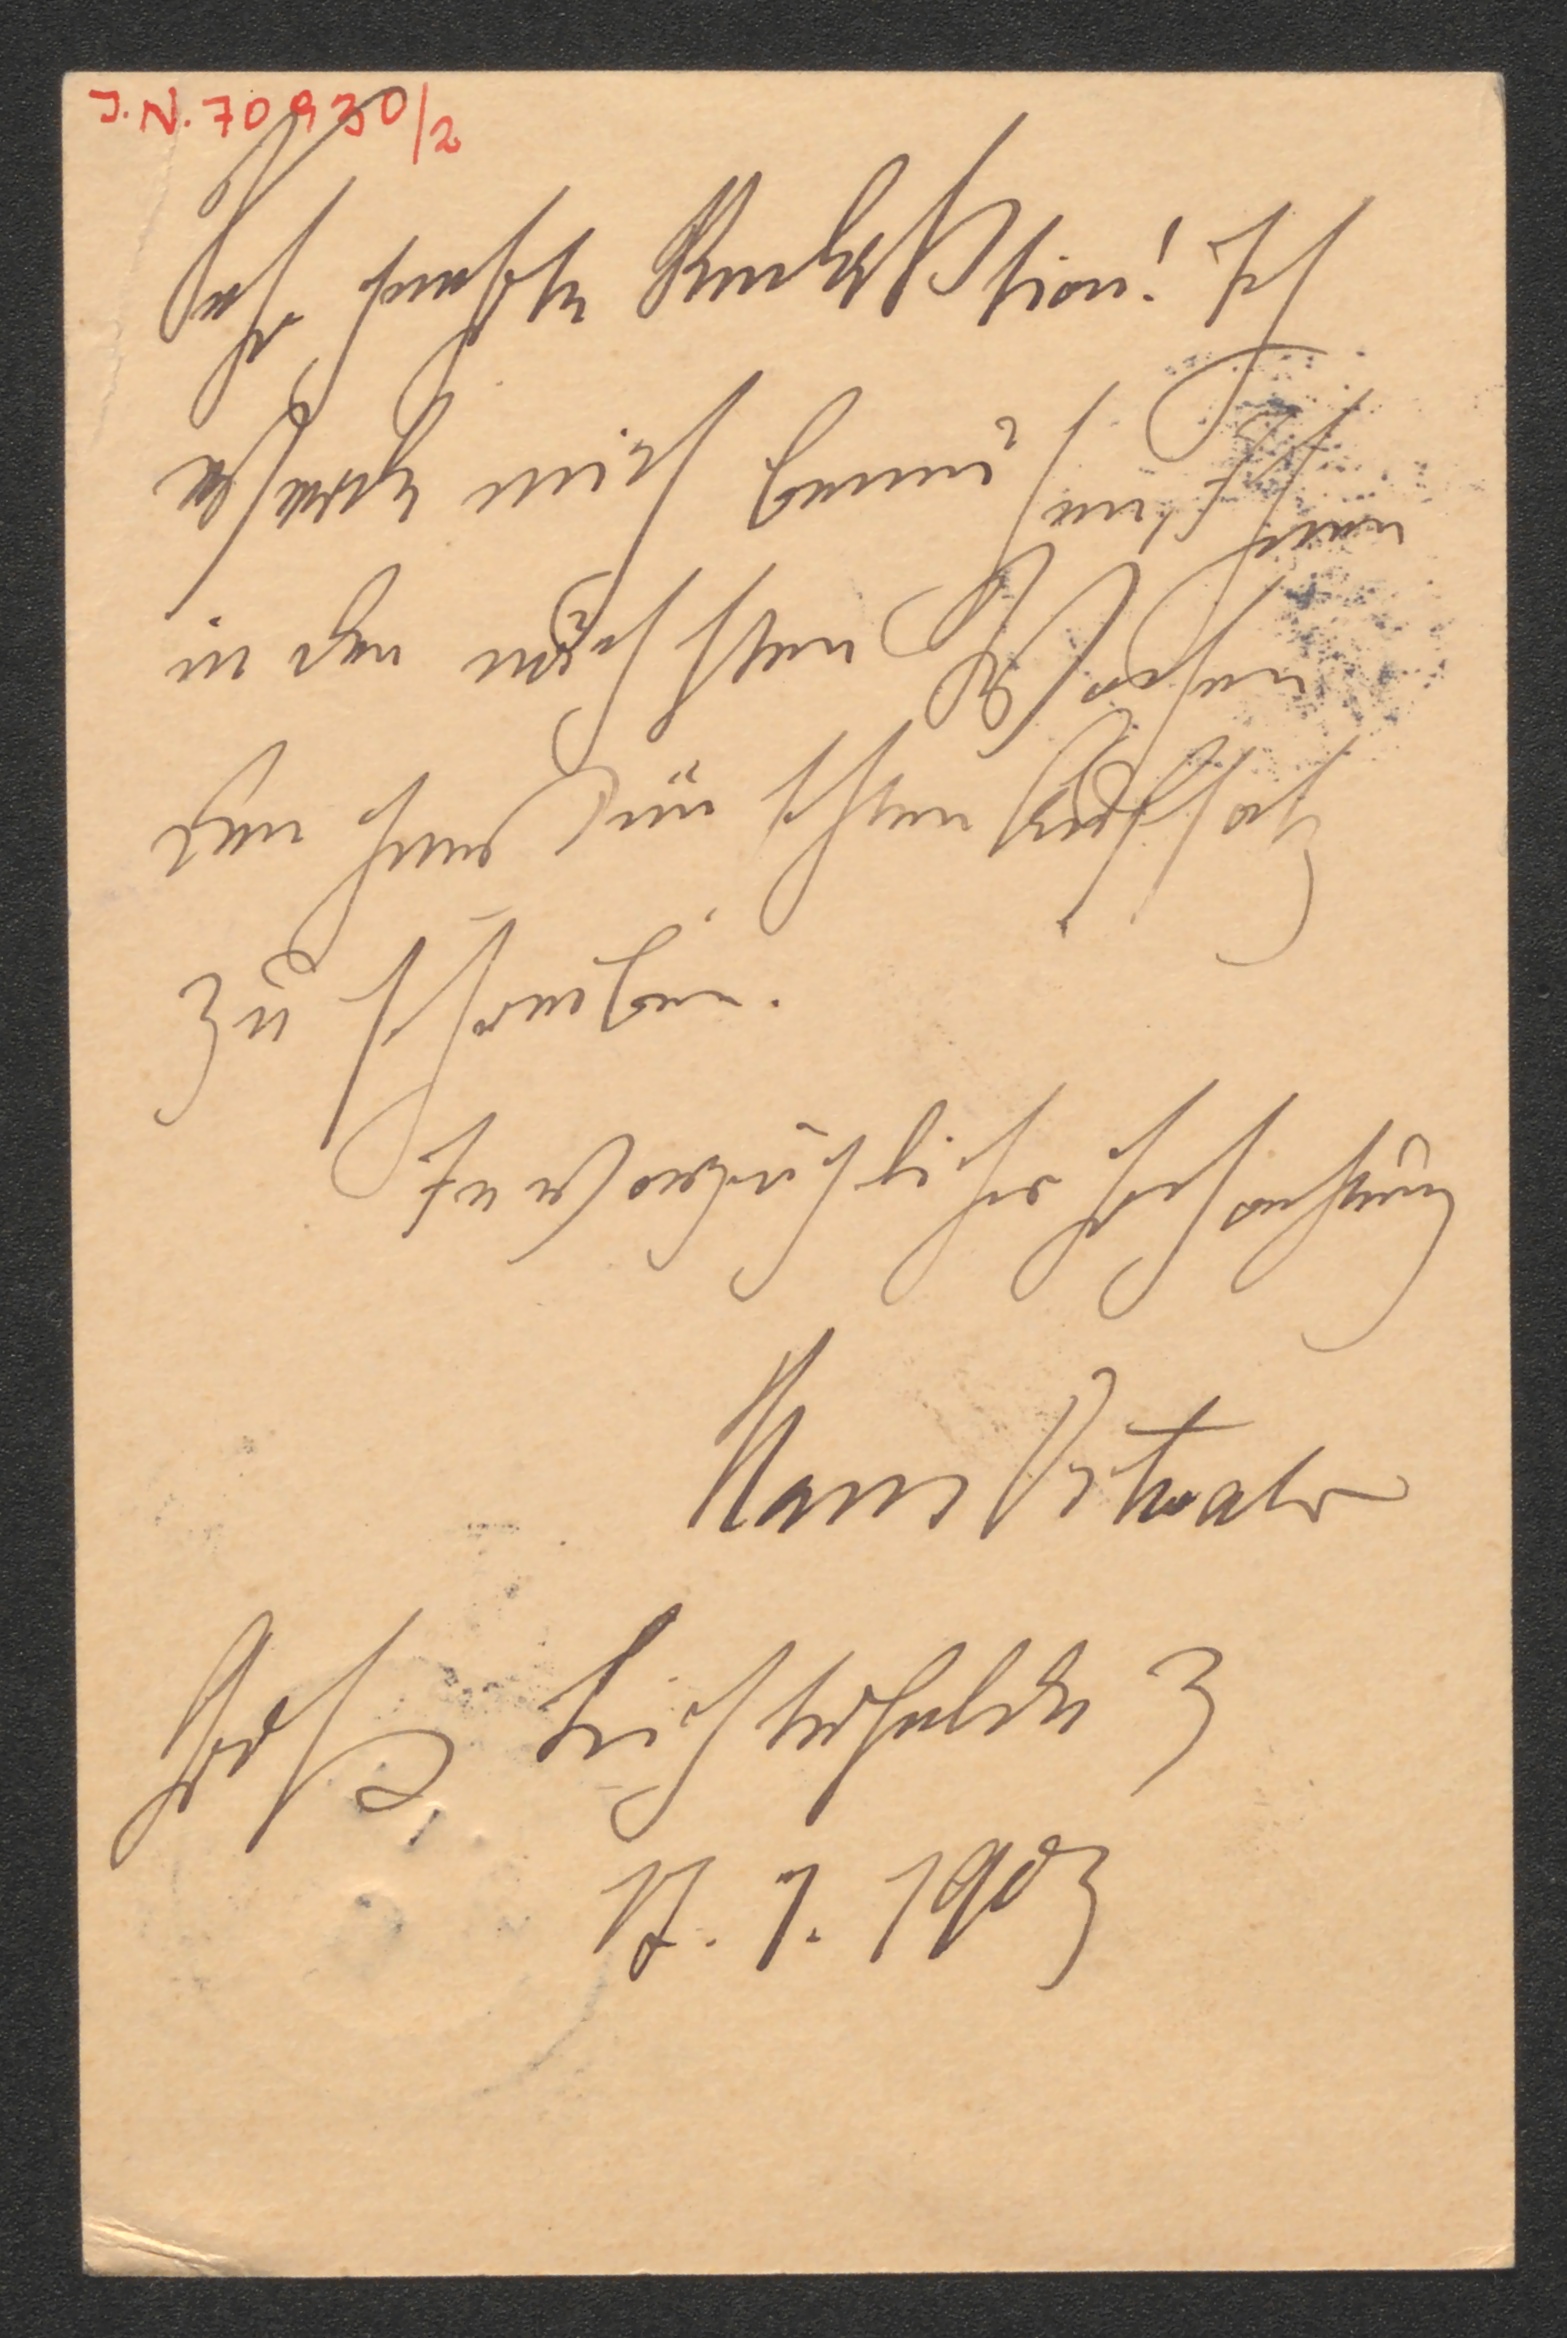 J.N. 70930/2
Sehr geehrte Redaktion! Ich
werde mich bemühen, Ihnen
in den nächsten Wochen
den gewünschten Aufsatz
zu schreiben.
In vorzüglicher Hochachtung
Hans Ostwald
Groß Lichterfelde 3
17. 1. 1903